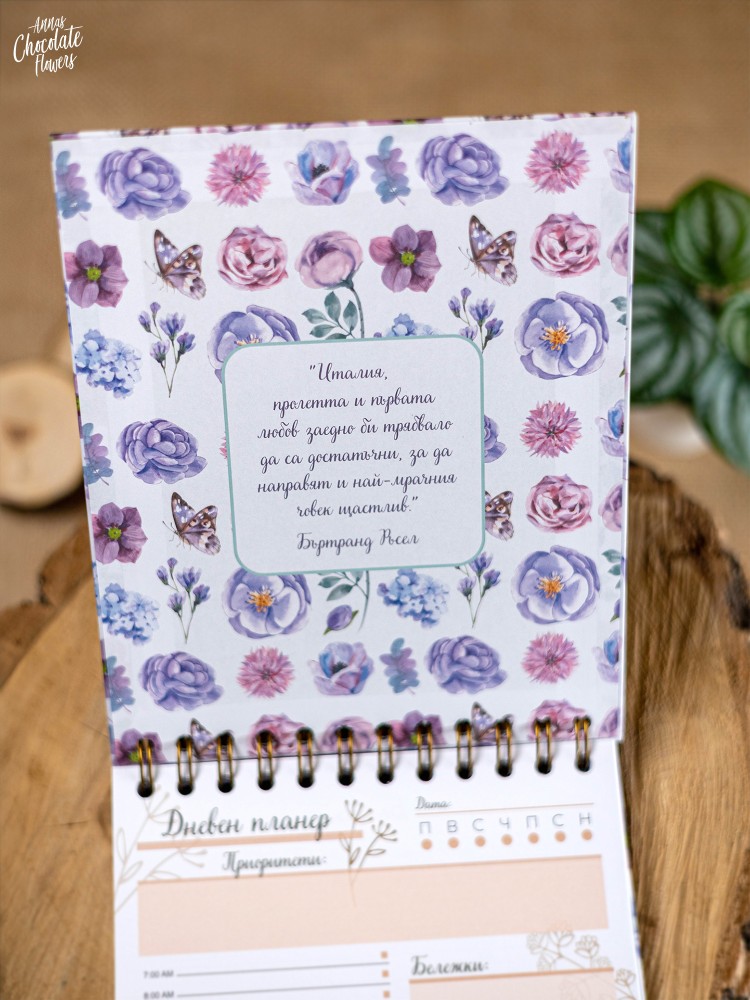 Annas
Chocolate
Flowers
"Италия,
пролетта и първата
любов заедно би трябвало
да са достатъчни, за да
направят и най-мрачния
човек щастлив."
Бъртранд Ръсел
Дневен планер
Дата:
П В С Ч П С Н
Приоритети:
7:00 AM
Бележки:
8:00 AM